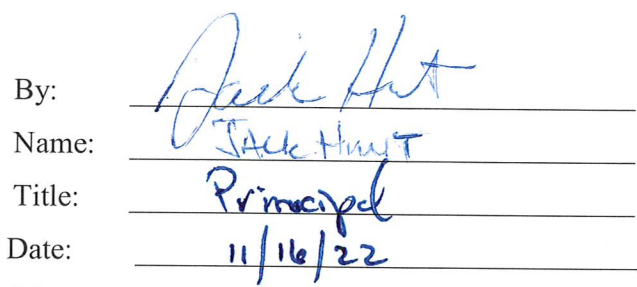 By: Jack Hunt
Name: JACK HUNT
Title: Principal
Date: 11/16/22